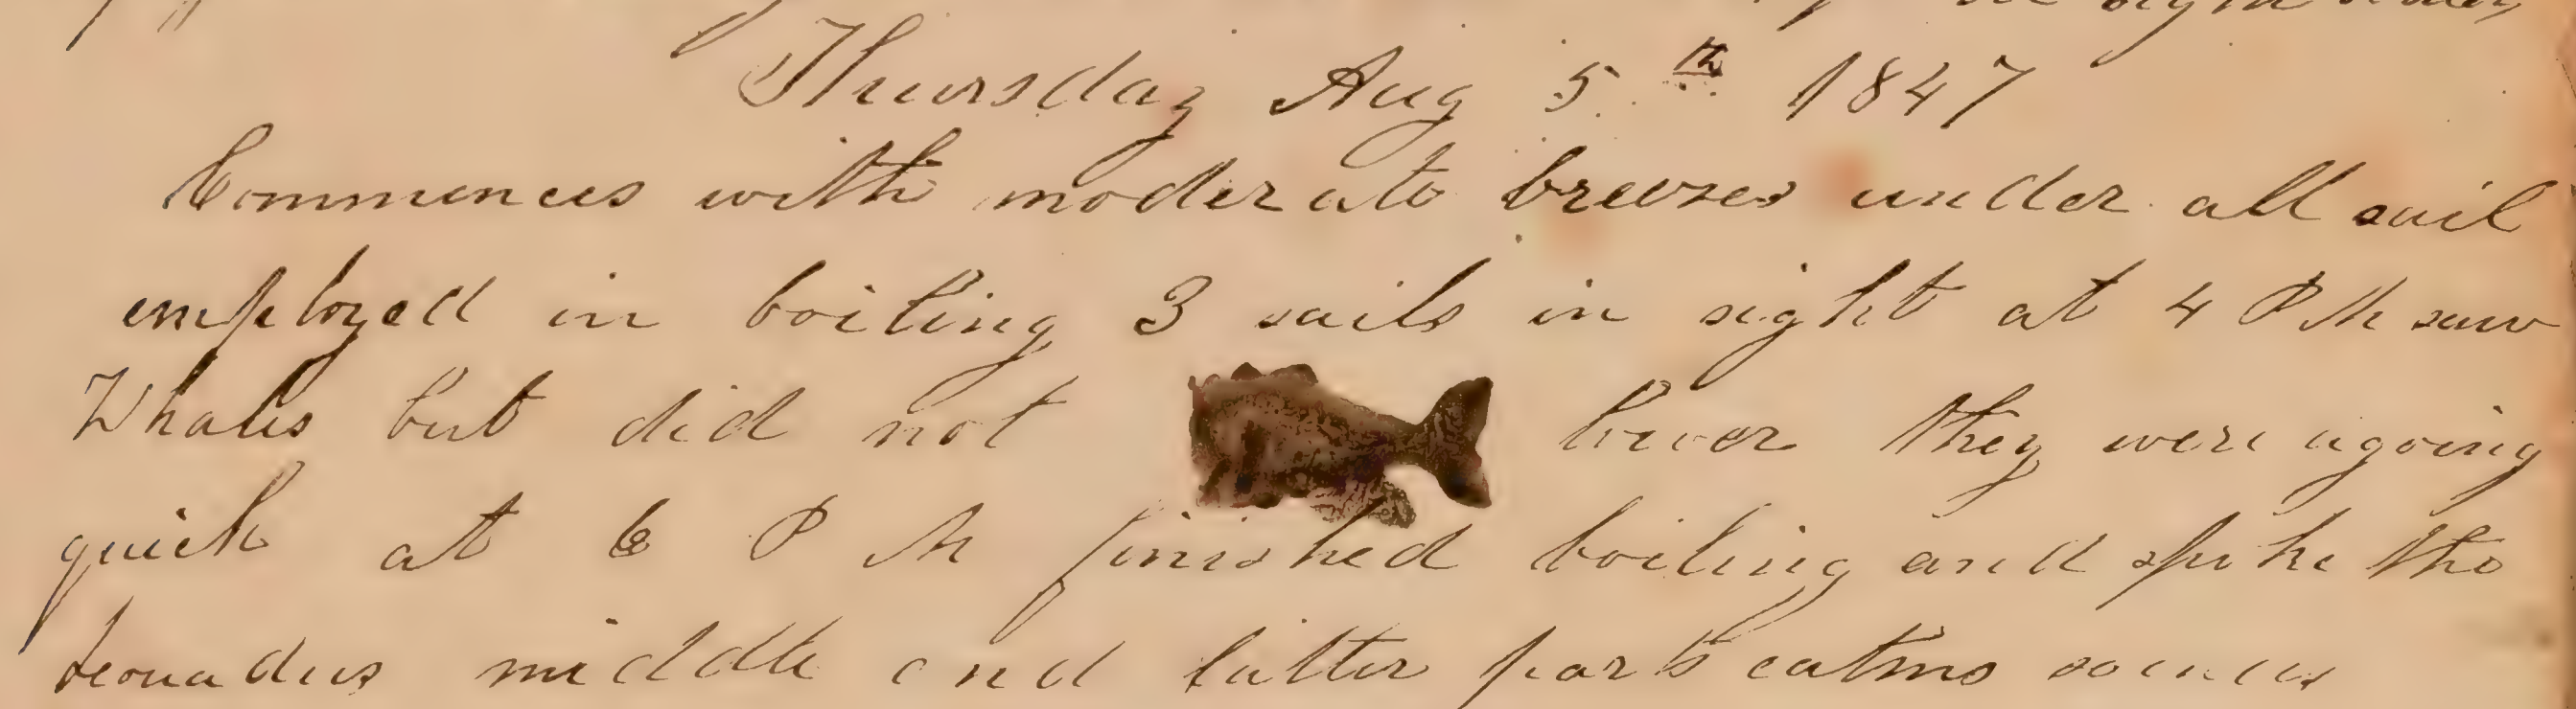 Thursday Aug 5th 1847
Commences with moderate breezes under all sail
employed in boiling 3 sails in sight at 4 P M saw
Whales but did not lower they were agoing
quick at 6 P M finished boiling and spoke the
middle and latter part calms